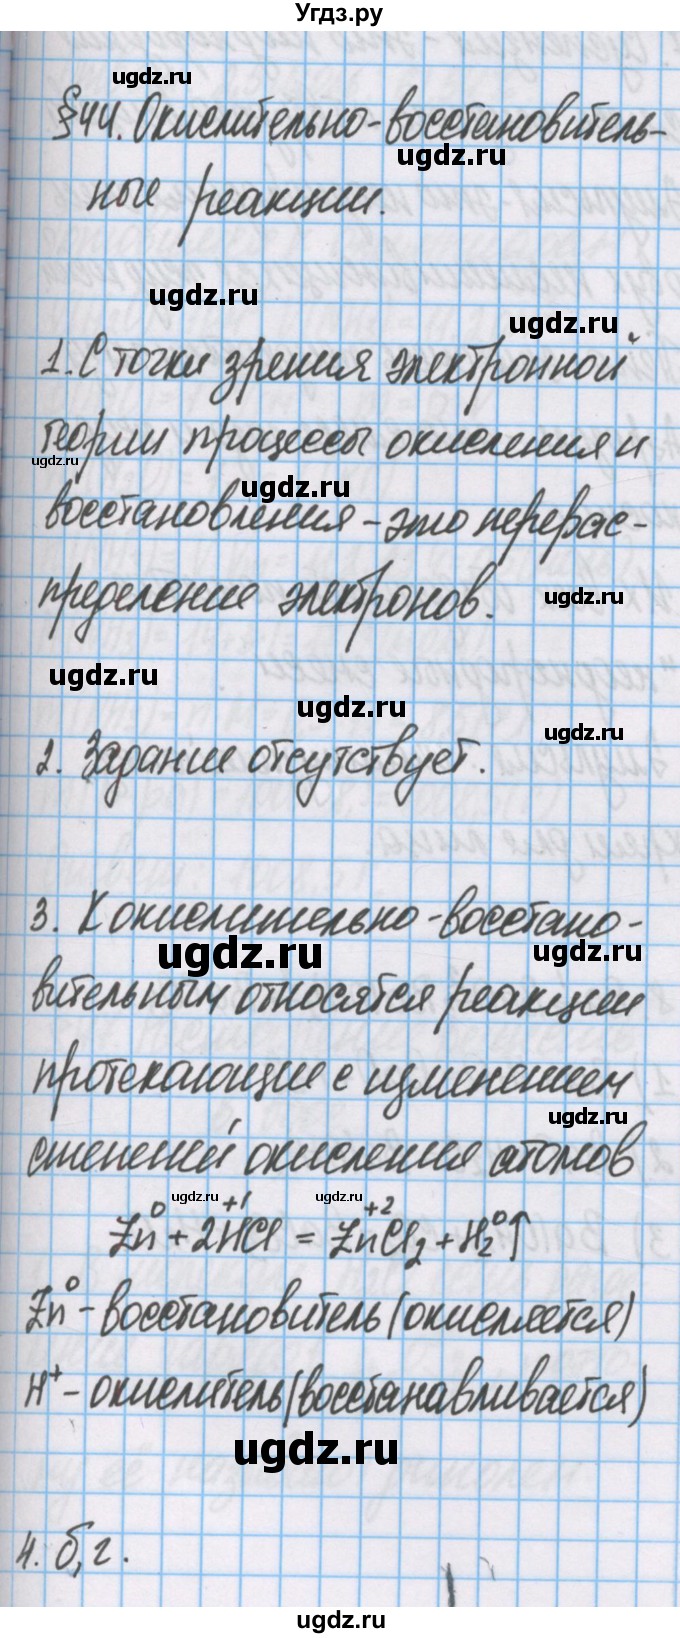 Угдз.ру
ugdz.ru
§44. Окислительно-восстановитель-
ugdz.ru
ные реакции.
ugdz.ru
ugdz.ru
1. С точки зрения электронной
теории процессы окисления и
ugdz.ru
ugdz.ru
восстановления - это перерас-
пределение электронов.
ugdz.ru
ugdz.ru
ugdz.ru
ugdz.ru
2. Задание отсутствует.
3. К окислительно-восстано-
ugdz.ru
ugdz.ru
вительным относятся реакции
протекающие с изменением
ugdz.ru
степеней окисления атомов
ugdz.ru
ugdz.ru
Zn⁰ + 2H⁺¹Cl = Zn⁺²Cl₂ + H₂⁰↑
Zn⁰ - восстановитель (окисляется)
H⁺ - окислитель (восстанавливается)
ugdz.ru
4. б, г.
ugdz.ru